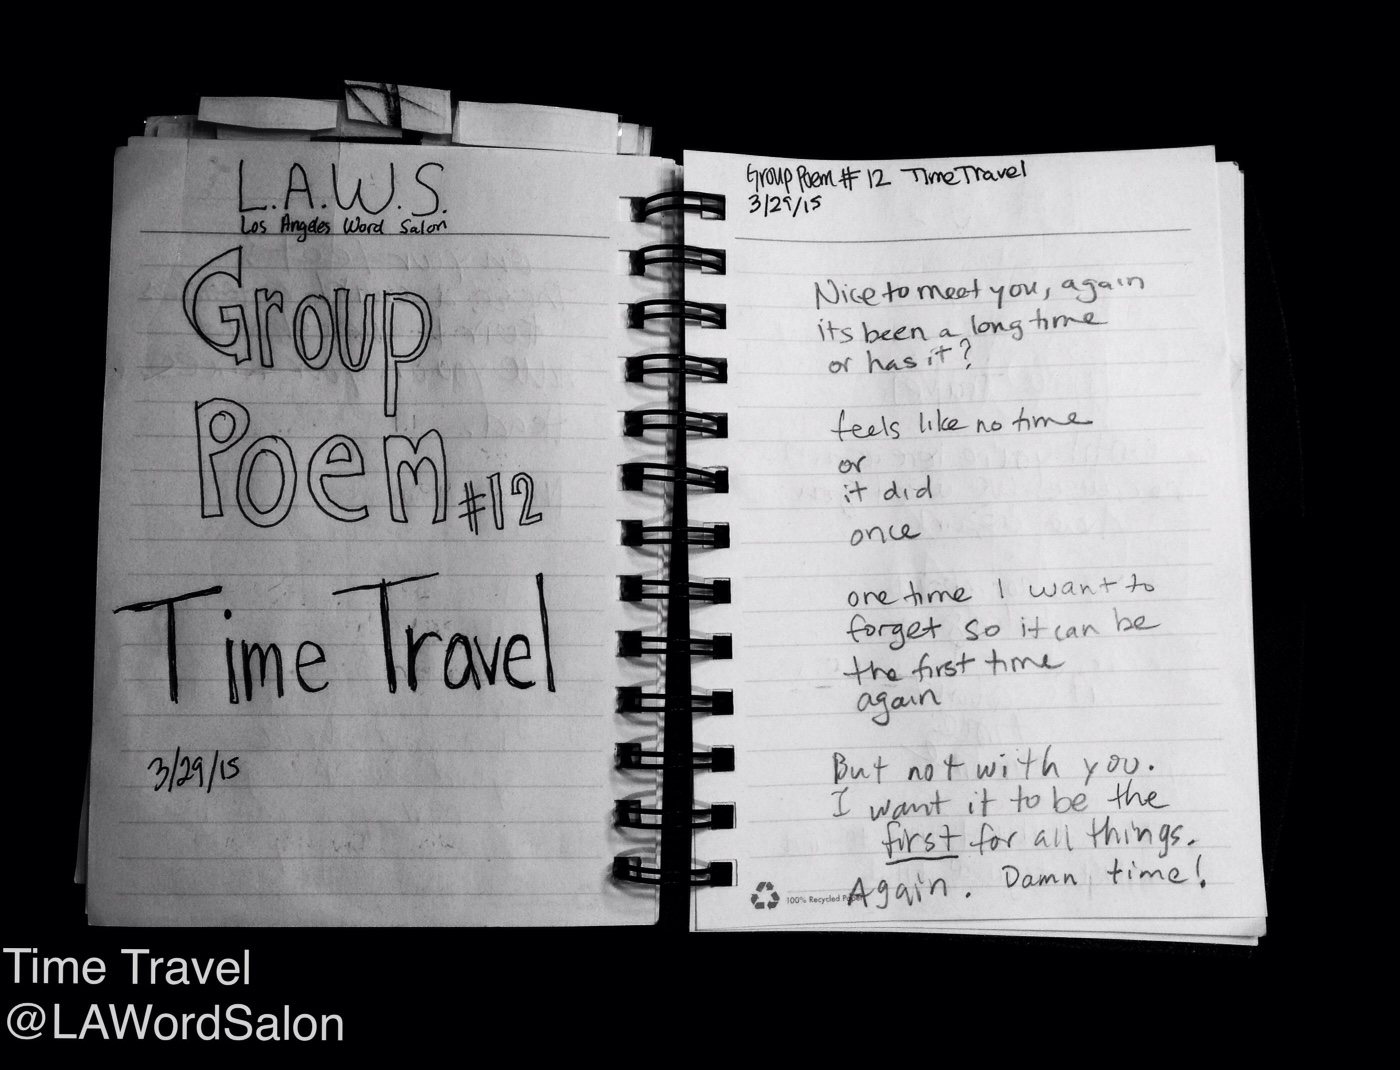 L.A.W.S.
Los Angeles Word Salon
Group
Poem #12
Time Travel
3/29/15
Group Poem # 12 Time Travel
3/29/15
Nice to meet you, again
its been a long time
or has it?
feels like no time
or
it did
once
one time I want to
forget so it can be
the first time
again
But not with you.
I want it to be the
first for all things.
Again. Damn time!
100% Recycled
Time Travel
@LAWordSalon